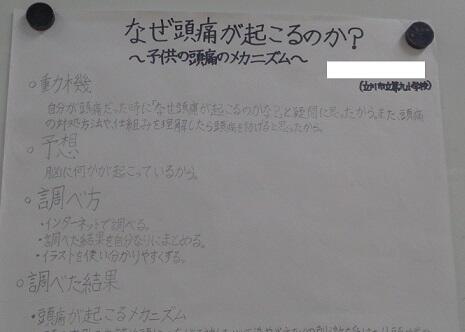 なぜ頭痛が起こるのか?
～子供の頭痛のメカニズム～
(立川市立第九小学校)
○動機
自分が頭痛だった時に「なぜ頭痛が起こるのかな?」と疑問に思ったから。また、頭痛
の対処方法や、仕組みを理解したら頭痛を防げると思ったから。
○予想
脳に何かが起こっているから。
○調べ方
・インターネットで調べる。
・調べた結果を自分なりにまとめる。
・イラストを使い分かりやすくする。
○調べた結果
・頭痛が起こるメカニズム